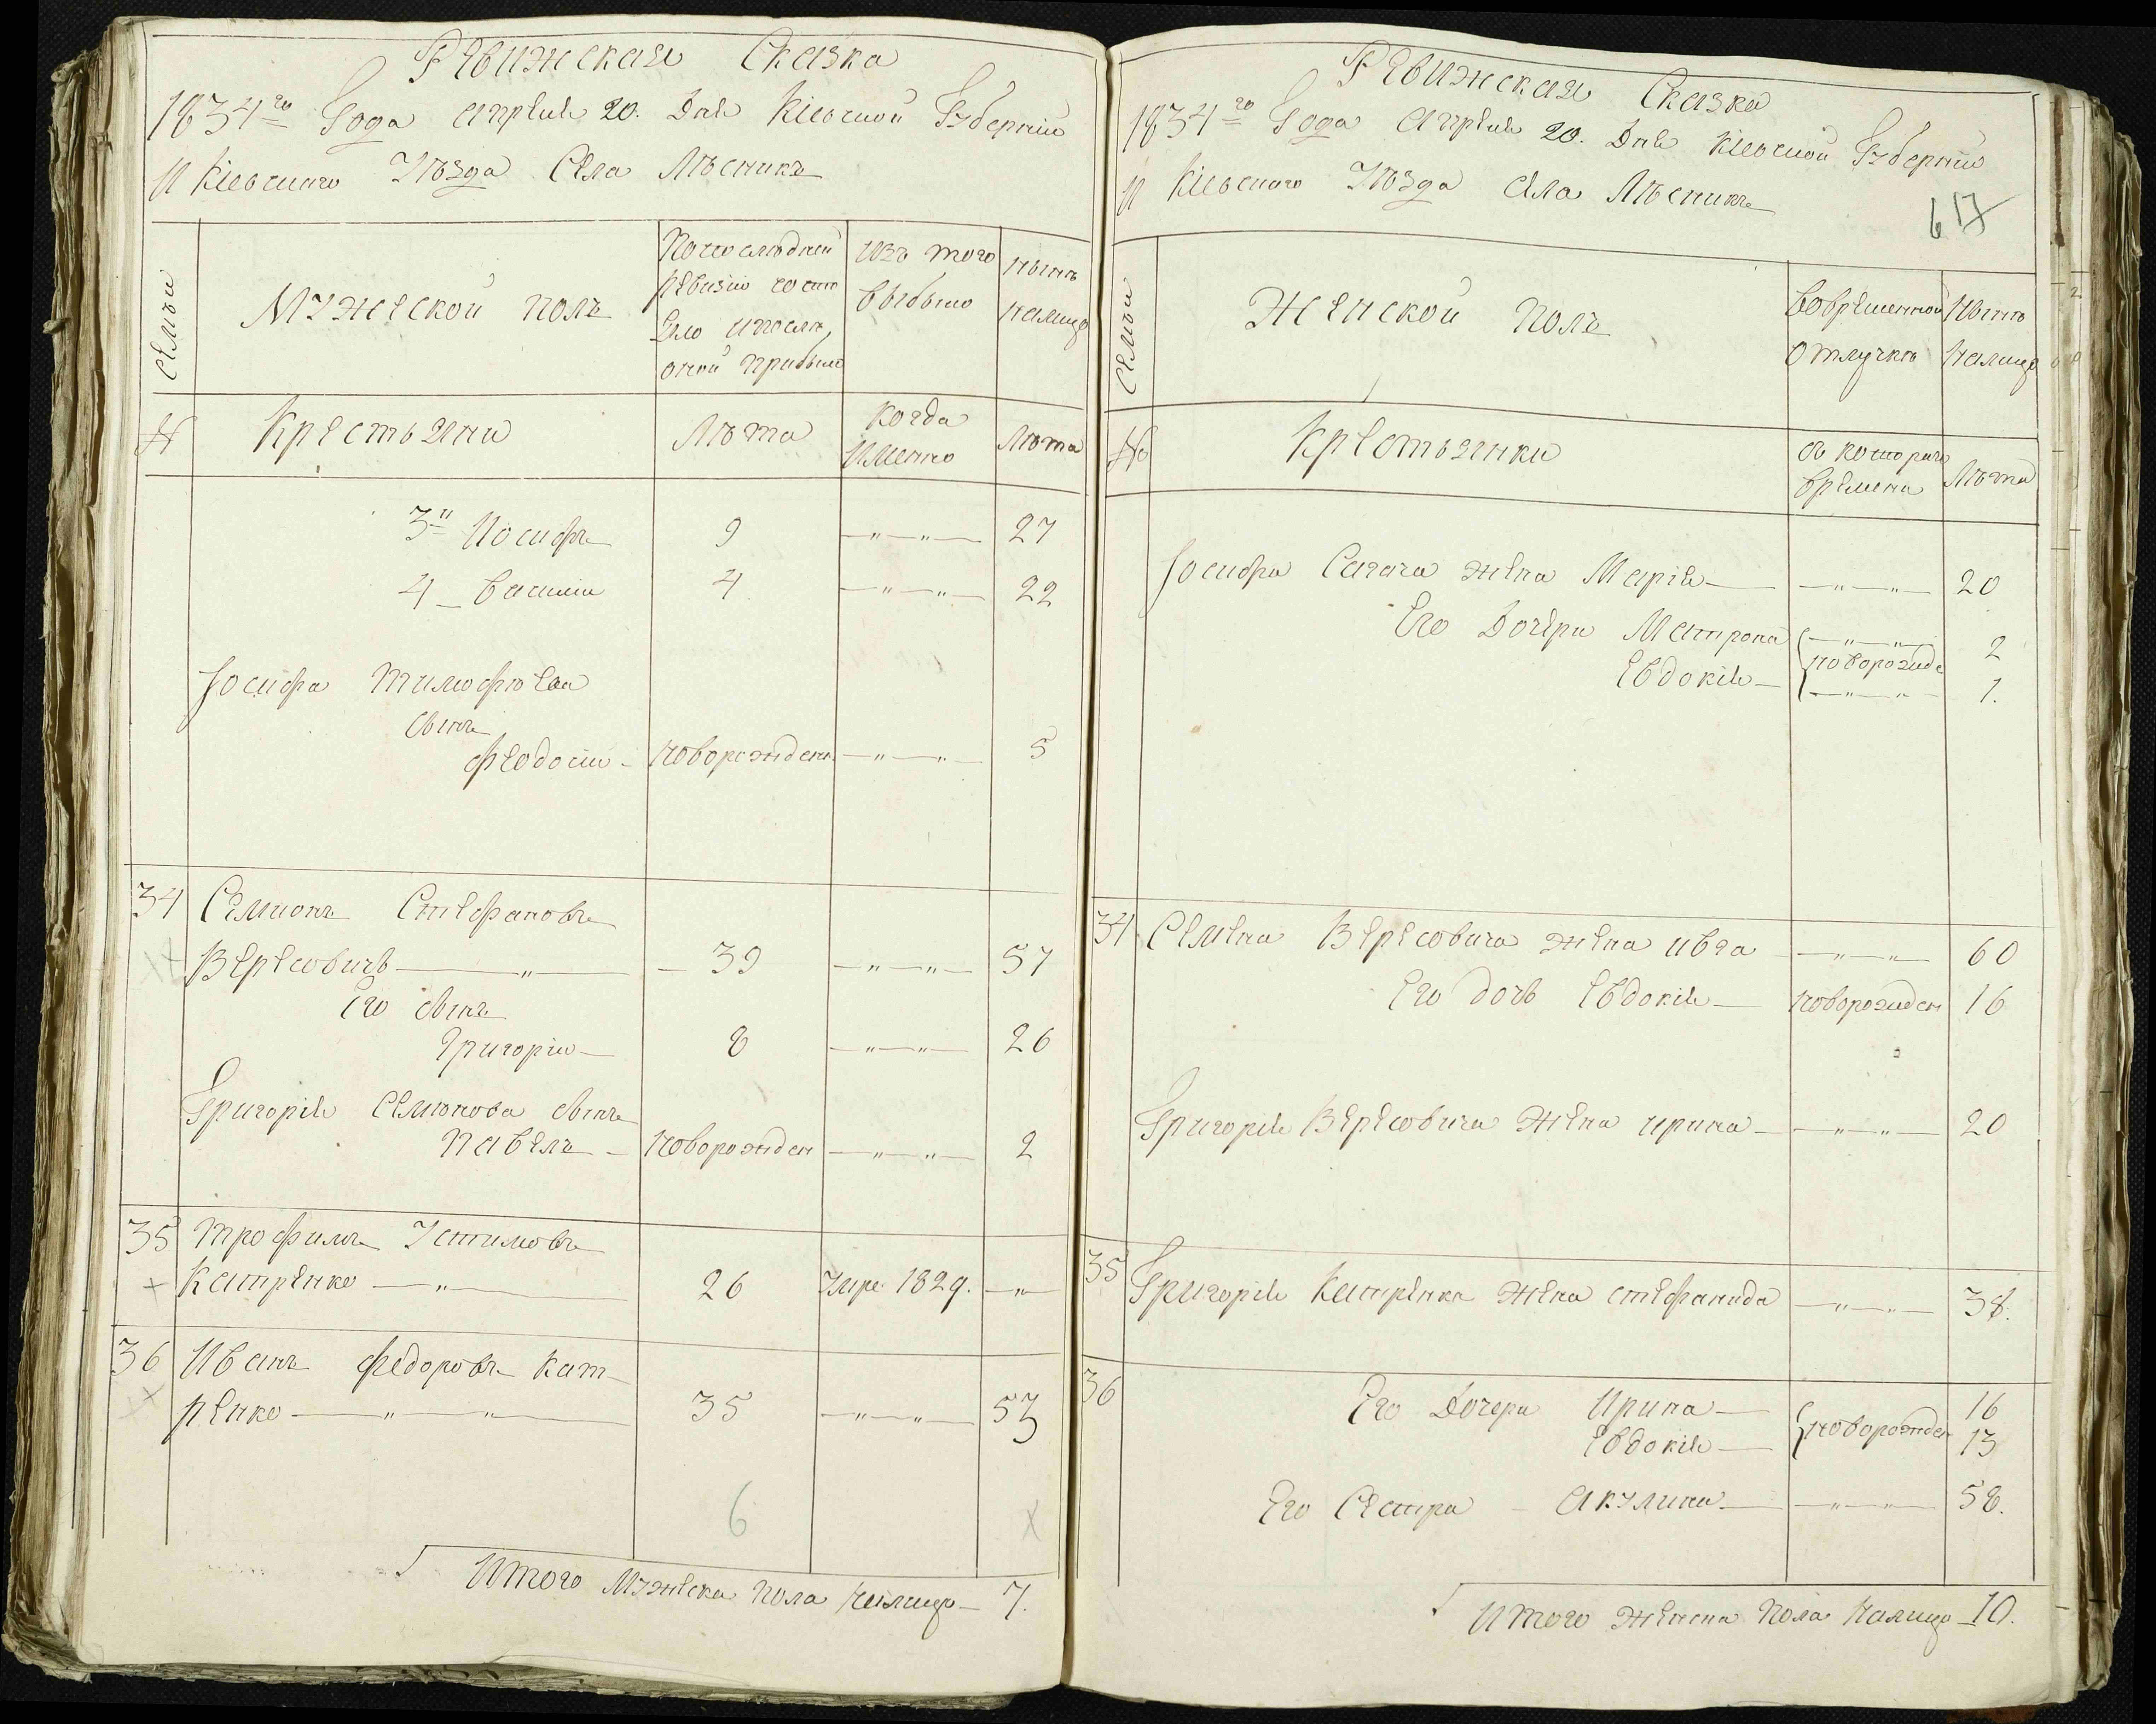 Ревижская Сказка
1834го Года Апреля 20. Дня Кіевской Губерніи
и Кіевскаго Уѣзда Села Лѣсникъ
Семьи
Мужеской полъ
По послѣдней
ревизіи состо
яло и послѣ
оной прибыло
Изъ того
выбыло
Нынѣ
налицо
№
Крестьяни
Лѣта
Когда
Именно
Лѣта
3й Иосифъ 9 —„—„— 27
4 – Василій 4 —„—„— 22
Іосифа Тимофѣева
сынъ
Феодосій – новорожденн —„—„— 5
34 Семионъ Стефановъ
Вересовичъ —„— 39 —„—„— 57
Его сынъ
Григорій – 8 —„—„— 26
Григорія Семионова сынъ
Павелъ – новорожден —„—„— 2
35 Трофимъ Устимовъ
Катренко —„— 26 Умре 1829. —„—
36 Иванъ Федоровъ Кат-
ренко —„—„— 35 —„—„— 53
6
Итого Мужеска пола налицо – 7.
Ревижская Сказка
1834го Года Апреля 20. Дня Кіевской Губерніи
и Кіевскаго Уѣзда Села Лѣсникъ
617
Семьи
Женской полъ
Во временной
отлучкѣ
Нынѣ
налицо
№
Крестьянки
съ котораго
времени
Лѣта
Іосифа Сагача жена Марія —„—„— 20
Его Дочери Матрона —„—„— 2
новорожде
Евдокія – —„—„— 1.
34 Семена Вересовича жена Ивга —„—„— 60
Его дочь Евдокія – новорожден 16
Григорія Вересовича жена Ирина —„—„— 20
35 Григорія Катренка жена Стефанида —„—„— 38.
36 Его Дочери Ирина – 16
новорожден
Евдокія – 13
Его Сестра – Акулина —„—„— 58.
Итого женска пола налицо – 10.